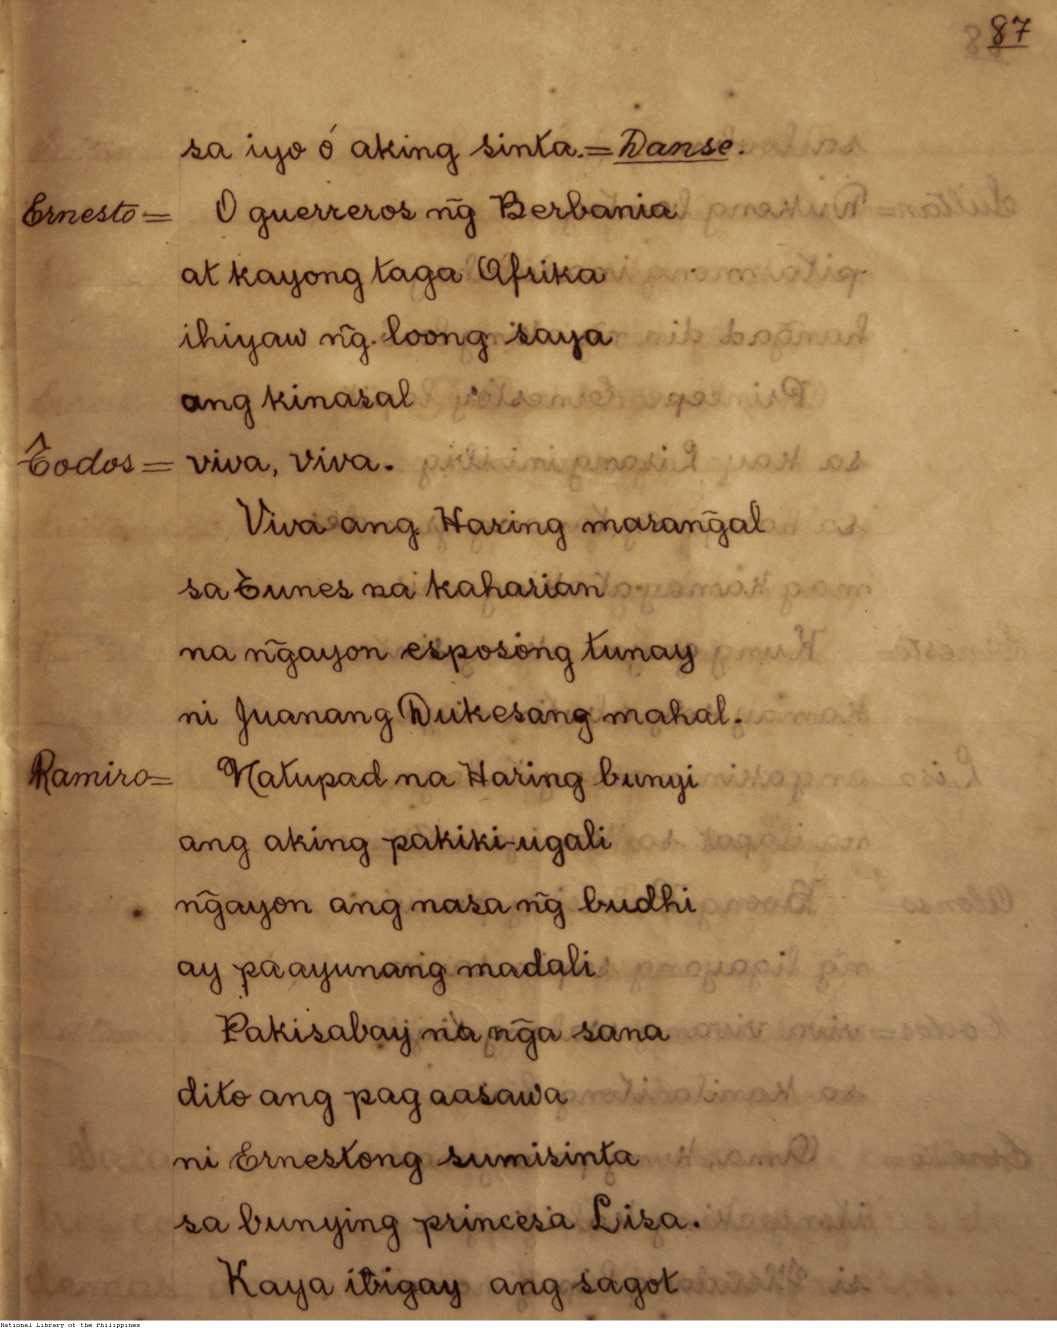 87
sa iyo ó aking sinta.= Danse.
Ernesto= O guerreros ng̃ Berbania
at kayong taga Afrika
ihiyaw ng̃ loong saya
ang kinasal
Todos= viva, viva.
Viva ang Haring marang̃al
sa Tunes na kaharian
na ng̃ayon esposong tunay
ni Juanang Dukesang mahal.
Ramiro= Natupad na Haring bunyi
ang aking pakiki-ugali
ng̃ayon ang nasa ng̃ budhi
ay paayunang madali
Pakisabay na ng̃a sana
dito ang pag aasawa
ni Ernestong sumisinta
sa bunying princesa Lisa.
Kaya ibigay ang sagot
National Library of the Philippines